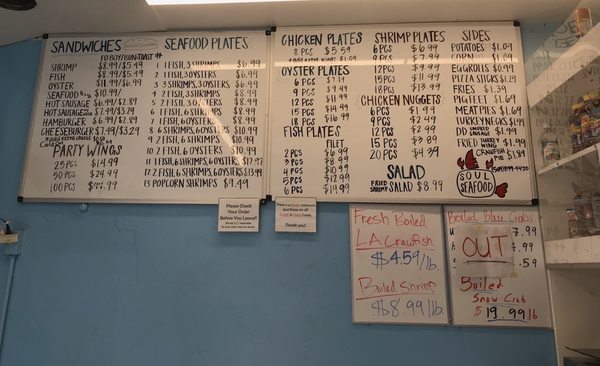 SANDWICHES
PO BOY/BUN-TOAST
SHRIMP $8.99/$5.49
FISH $8.99/$5.49
OYSTER $11.99/$6.99
SEAFOOD $10.99/
HOT SAUSAGE $6.99/$2.89
HOT SAUSAGE $7.49/$3.29
HAMBURGER $6.99/$2.89
CHEESEBURGER $7.49/$3.29
PARTY WINGS
25 PCS $14.99
50 PCS $24.99
100 PCS
SEAFOOD PLATES
#
1 1 FISH, 3 SHRIMPS $6.99
2 1 FISH, 3 OYSTERS $6.99
3 3 SHRIMPS, 3 OYSTERS $6.99
4 2 FISH, 3 SHRIMPS $8.99
5 2 FISH, 3 OYSTERS $8.99
6 1 FISH, 6 SHRIMPS $8.99
7 1 FISH, 6 OYSTERS $8.99
8 6 SHRIMPS, 6 OYSTERS $10.99
9 2 FISH, 6 SHRIMPS $10.99
10 2 FISH, 6 OYSTERS
11 1 FISH, 6 SHRIMPS, 6 OYSTERS
12 2 FISH, 6 SHRIMPS, 6 OYSTERS
13 POPCORN SHRIMPS $9.49
CHICKEN PLATES
2 PCS $5.59
OYSTER PLATES
6 PCS
9 PCS
12 PCS $11.99
15 PCS $14.99
18 PCS $16.99
FISH PLATES
FILET
2 PCS $6.99
3 PCS $8.99
4 PCS $10.99
5 PCS $12.99
6 PCS $14.99
SHRIMP PLATES
6 PCS $6.99
9 PCS
12 PCS
15 PCS $11.99
18 PCS $13.99
CHICKEN NUGGETS
6 PCS $1.99
9 PCS $2.99
12 PCS $3.89
15 PCS $3.89
20 PCS $4.39
SALAD
FRIED SHRIMP SALAD $8.99
SIDES
POTATOES $1.09
CORN $1.89
EGGROLLS $0.99
PIZZA STICKS $1.29
FRIES $1.39
PIG FEET $1.69
MEAT PIES $1.69
TURKEY NECKS
DD SMOKED SAUSAGE $1.99
FRIED TURKEY WING $4.99
CRAWFISH PIE $1.89
SOUL
SEAFOOD
Please Check
Your Order
Before You Leave!
Thank you!
Fresh Boiled
LA Crawfish
$4.59/lb.
Boiled Shrimp
$8.99/lb.
Boiled Blue Crabs
OUT
Boiled
Snow Crab
$19.99 lb